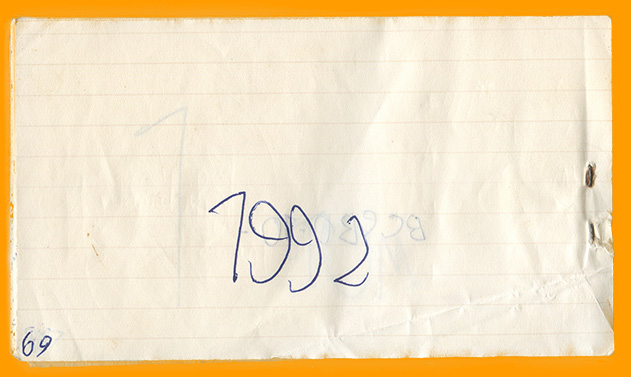 1992
69